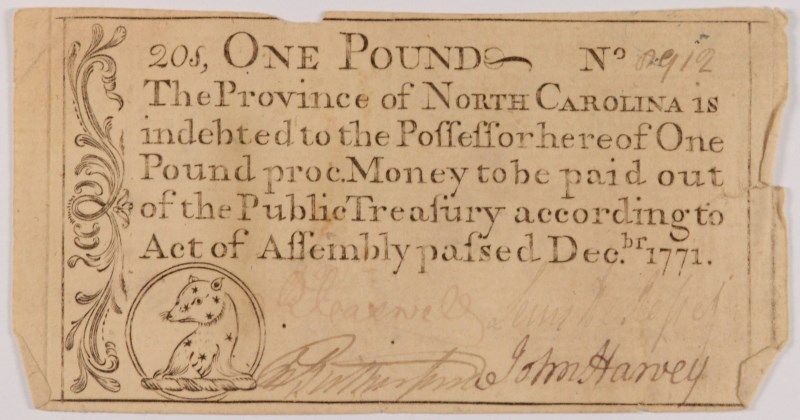 20s, ONE POUND No 2912
The Province of NORTH CAROLINA is
indebted to the Poſſeſſor hereof One
Pound proc. Money to be paid out
of the Public Treaſury according to
Act of Aſſembly paſsed Dec.br 1771.
R Caswell
Rutherfurd John Harvey